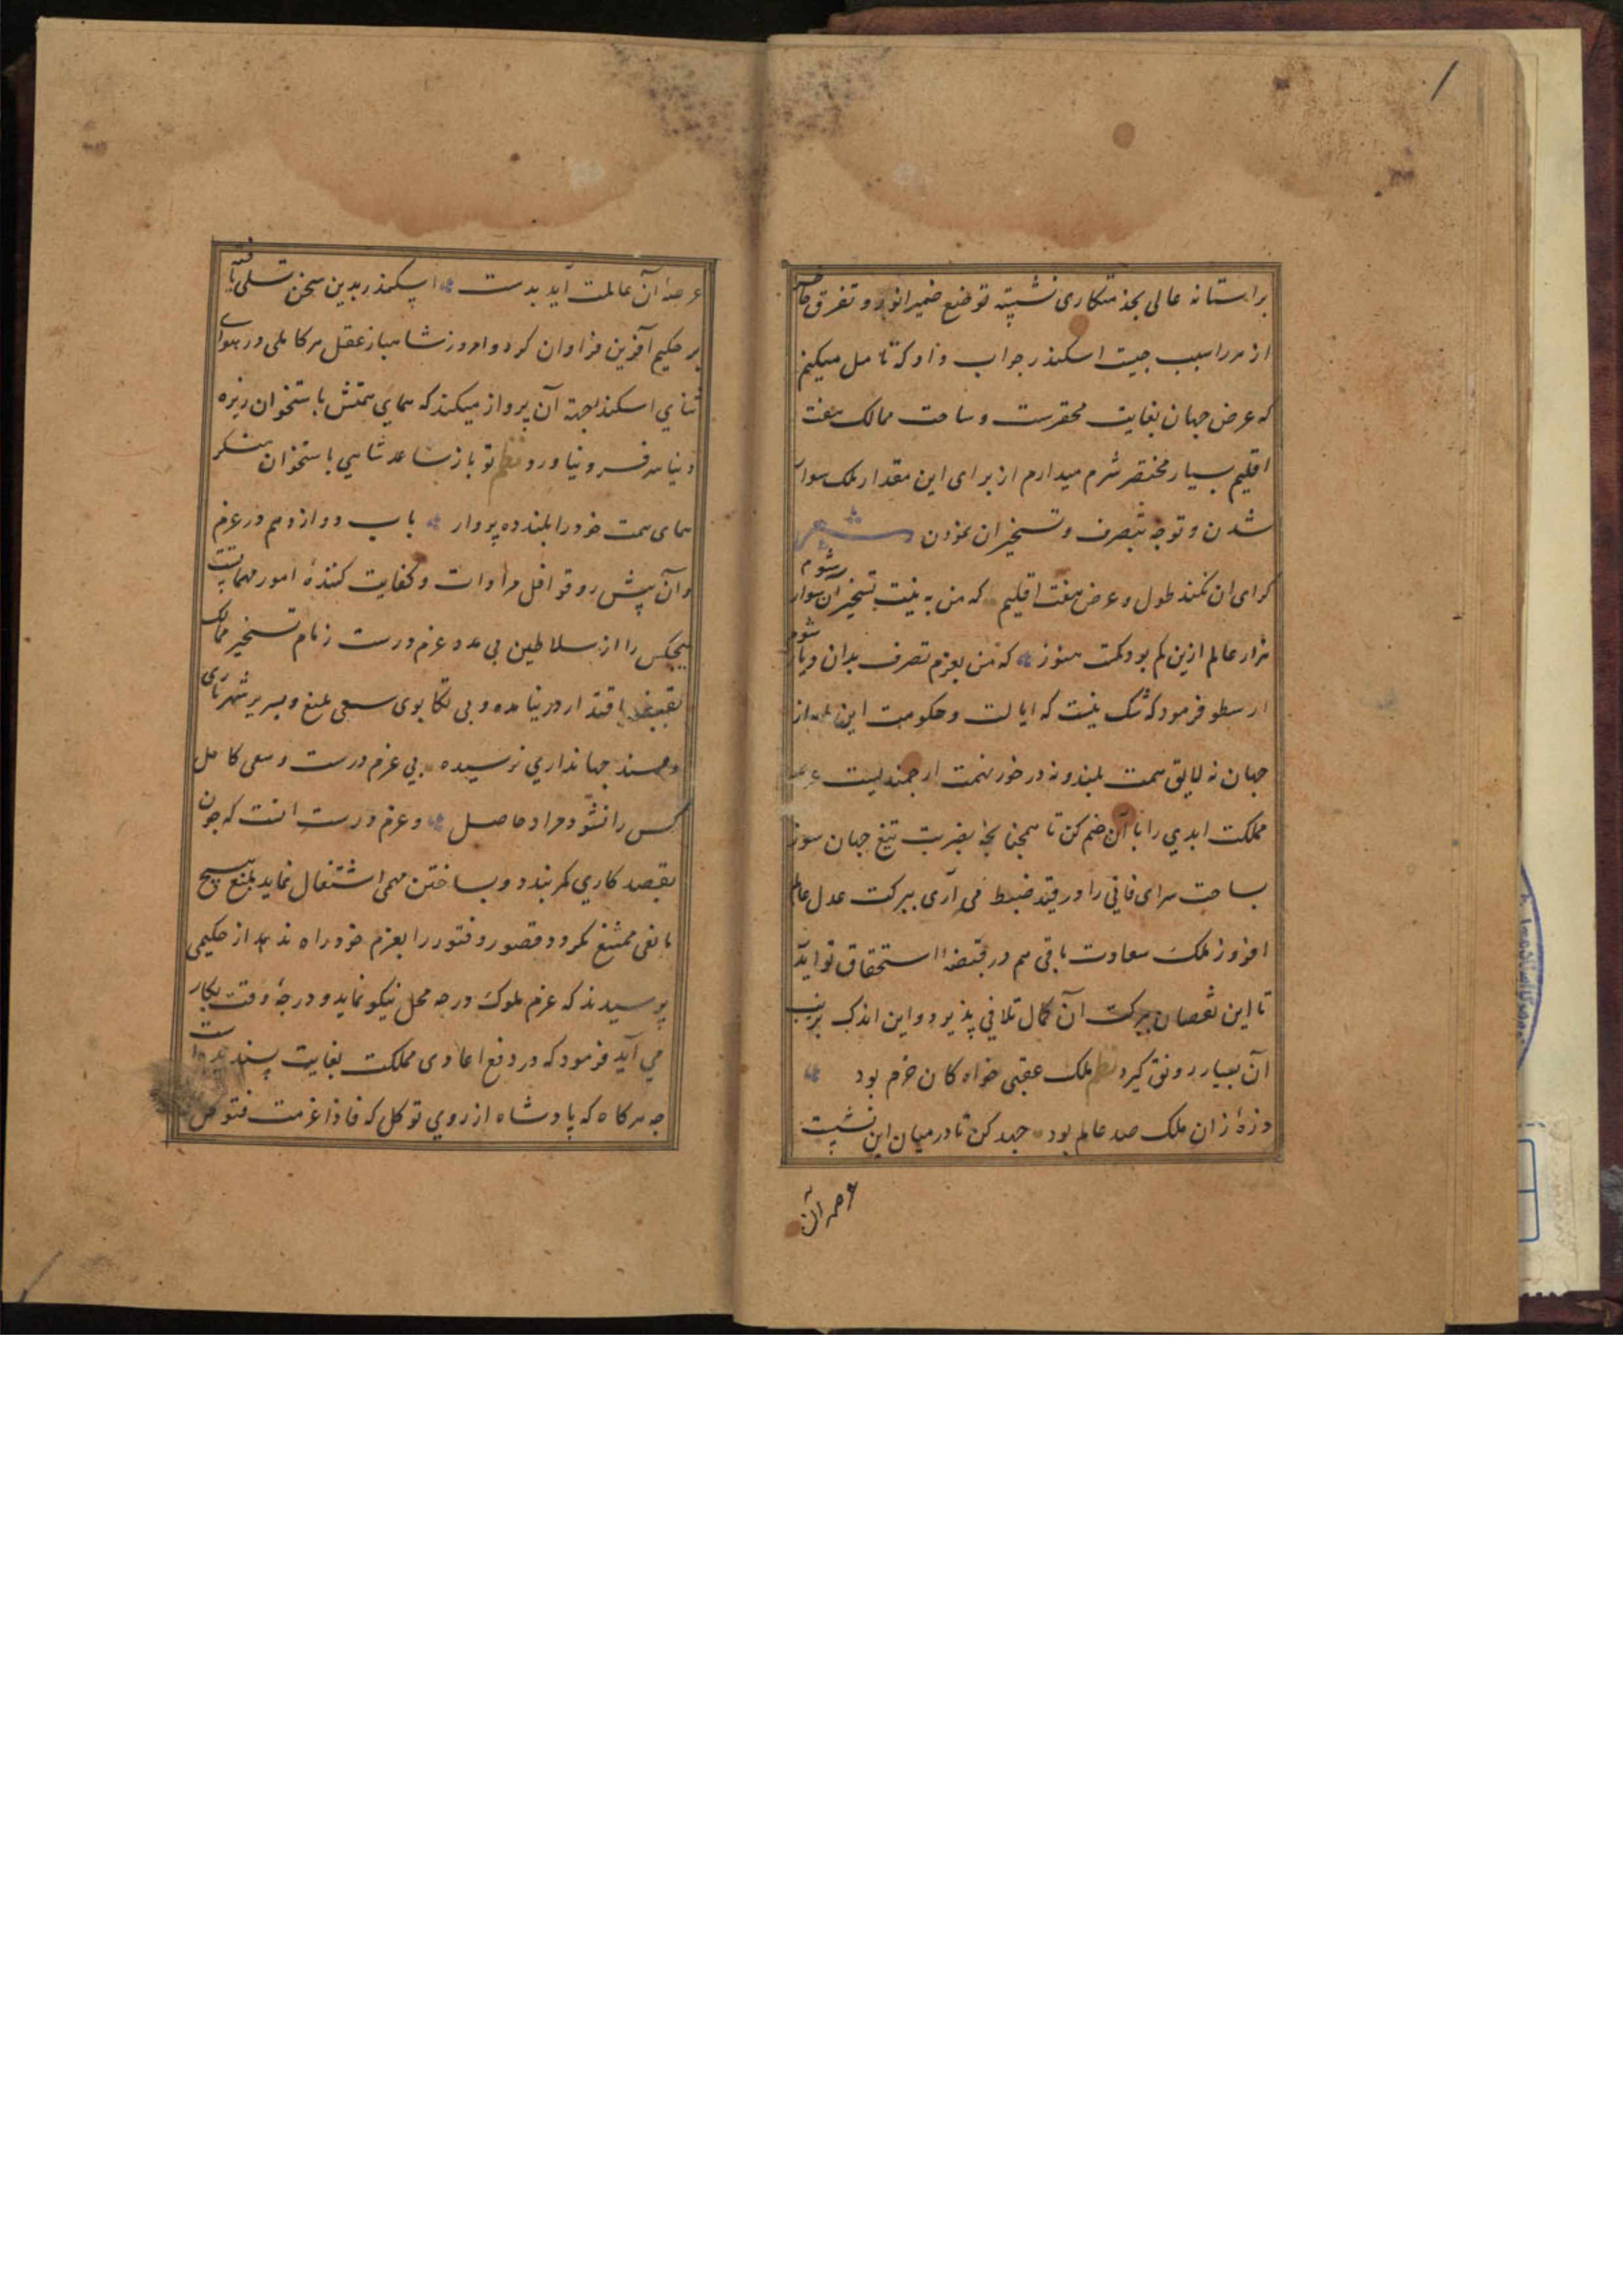 بر استانه عالی بخدمتکاری نشسته توضع ضمیر انور و تفرق خاطر
از هر را سبب جیست اسکندر جواب داد که تامل میکنم
که عرض جهان بغایت محقرست و ساحت ممالک هفت
اقلیم بسیار مختصر شرم میدارم از برای این مقدار ملک سوار
شدن و توجه بتصرف و تسخیر ان نمودن شعر
کرای ان نکند طول و عرض هفت اقلیم که من به نیت تسخیر آن سوار شوم
هزار عالم ازین کم بودکمت هنوز که من بعزم تصرف بدان دیار شوم
ارسطو فرمود که شک نیست که ایالت و حکومت این
جهان نه لایق همت بلند و نه در خور نهمت ارجمندیست
مملکت ابدی را با آن ضم کن تا همجنانجه بضربت تیغ جهان سوز
ساحت سرای فانی را در قید ضبط می آری ببرکت عدل عالم
افروز ملک سعادت باقی هم در قبضهٔ استحقاق تو اید
تا این نقصان ببرکت آن کمال تلافی پذیرد و این اندک بزینت
آن بسیار رونق کیرد نظم ملک عقبی خواه کان خرم بود
ذرهٔ زان ملک صد عالم بود جهد کن تا در میان این نشست
عرصه آن
عرصهٔ آن عالمت آید بدست اسکندر بدین سخن تسلی یافته
بر حکیم آفرین فراوان کرد و امروز شاهباز عقل هر کاملی در هوای
ثنای اسکندر بجهة آن پرواز میکند که همای همتش باستخوان ریزه
دنیا سر فرو نیاورد نظم تو باز ساعد شاهی باستخوان منکر
همای همت خود را بلند ده پرواز باب دوازدهم در عزم
و آن پیش رو قوافل مرادات و کفایت کنندهٔ امور مهماتست
هیجکس را از سلاطین بی مدد عزم درست زمام تسخیر ممالک
بقبضهٔ اقتدار در نیامده و بی تکابوی سعی بلیغ و بسریر شهریاری
و مسند جهانداری نرسیده بی عزم درست و سعی کامل
کس را نشود مراد حاصل و عزم درست انست که جون
بقصد کاری کمر بندد و بساختن مهمی اشتغال نماید بمنع هیچ
مانعی ممتنع نکردد و قصور و فتور را بعزم خود راه ندهد از حکیمی
پرسیدند که عزم ملوک در جه محل نیکو نماید و در جهٔ وقت بکار
می آید فرمود که در دفع اعادی مملکت بغایت پسندیده است
جه هرکاه که پادشاه از روی توکل که فاذا عزمت فتوکل